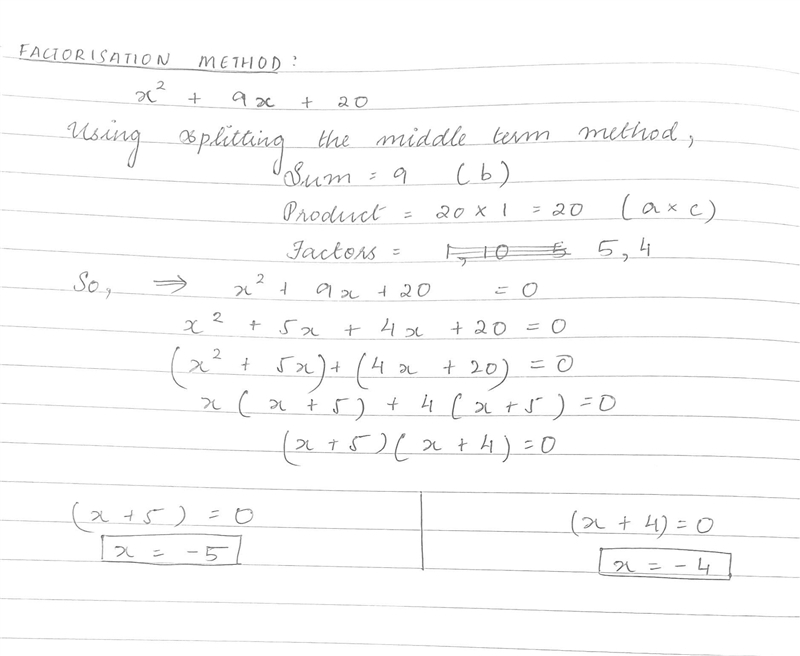 FACTORISATION METHOD:
x² + 9x + 20
Using splitting the middle term method,
Sum = 9 (b)
Product = 20 × 1 = 20 (a × c)
Factors = 1, 10 5 5, 4
So, ⇒ x² + 9x + 20 = 0
x² + 5x + 4x + 20 = 0
(x² + 5x) + (4x + 20) = 0
x(x + 5) + 4(x + 5) = 0
(x + 5)(x + 4) = 0
(x + 5) = 0 (x + 4) = 0
x = -5 x = -4